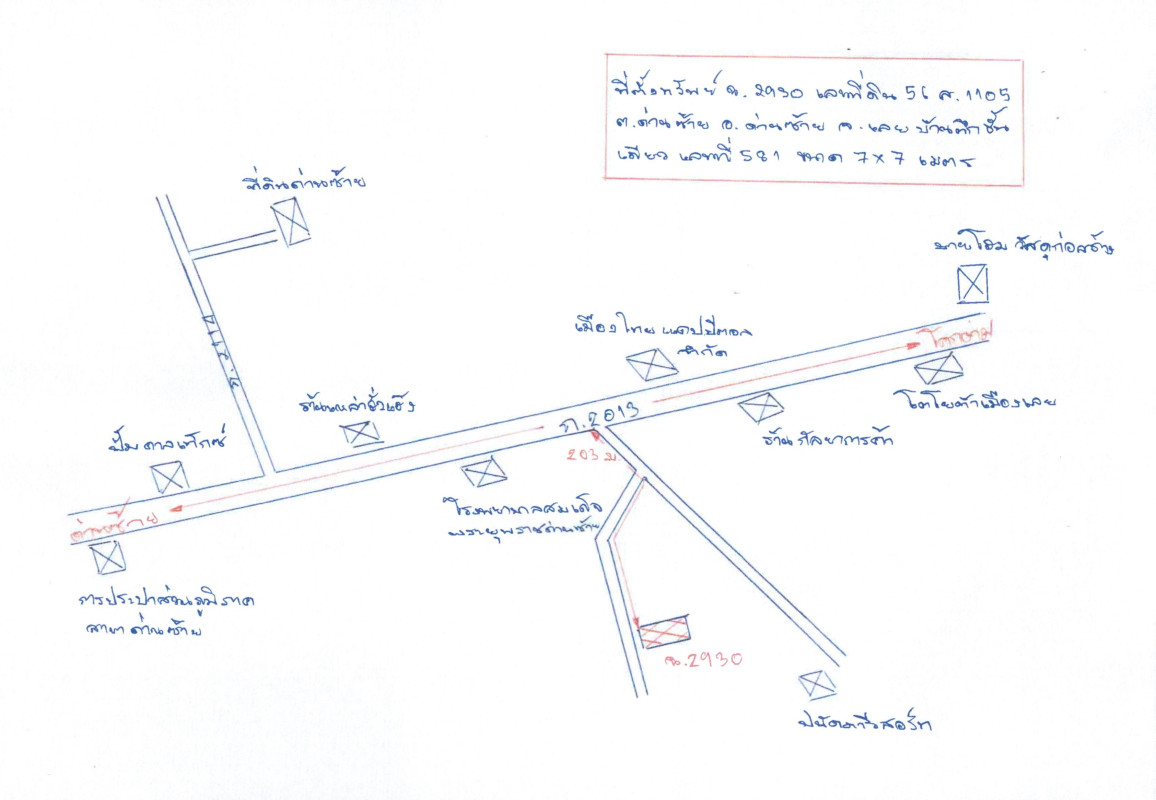 ที่ตั้งทรัพย์ ฉ. 2930 เลขที่ดิน 56 ส. 1105
ต.ด่านซ้าย อ. ด่านซ้าย จ. เลย บ้านตึกชั้น
เดียว เลขที่ 581 ขนาด 7 x 7 เมตร
ที่ดินด่านซ้าย
นายโฮม วัสดุก่อสร้าง
เมืองไทย แคปปิตอล
จำกัด
โคกงาม
ร้านเหล่ายั่วเฮง
ถ.2013
โตโยต้าเมืองเลย
ร้านกัลยาการค้า
ปั้มคาลเท็กซ์
203 ม.
โรงพยาบาลสมเด็จ
พระยุพราชด่านซ้าย
ด่านซ้าย
การประปาส่วนภูมิภาค
สาขาด่านซ้าย
ฉ.2930
ปนัดดารีสอร์ท